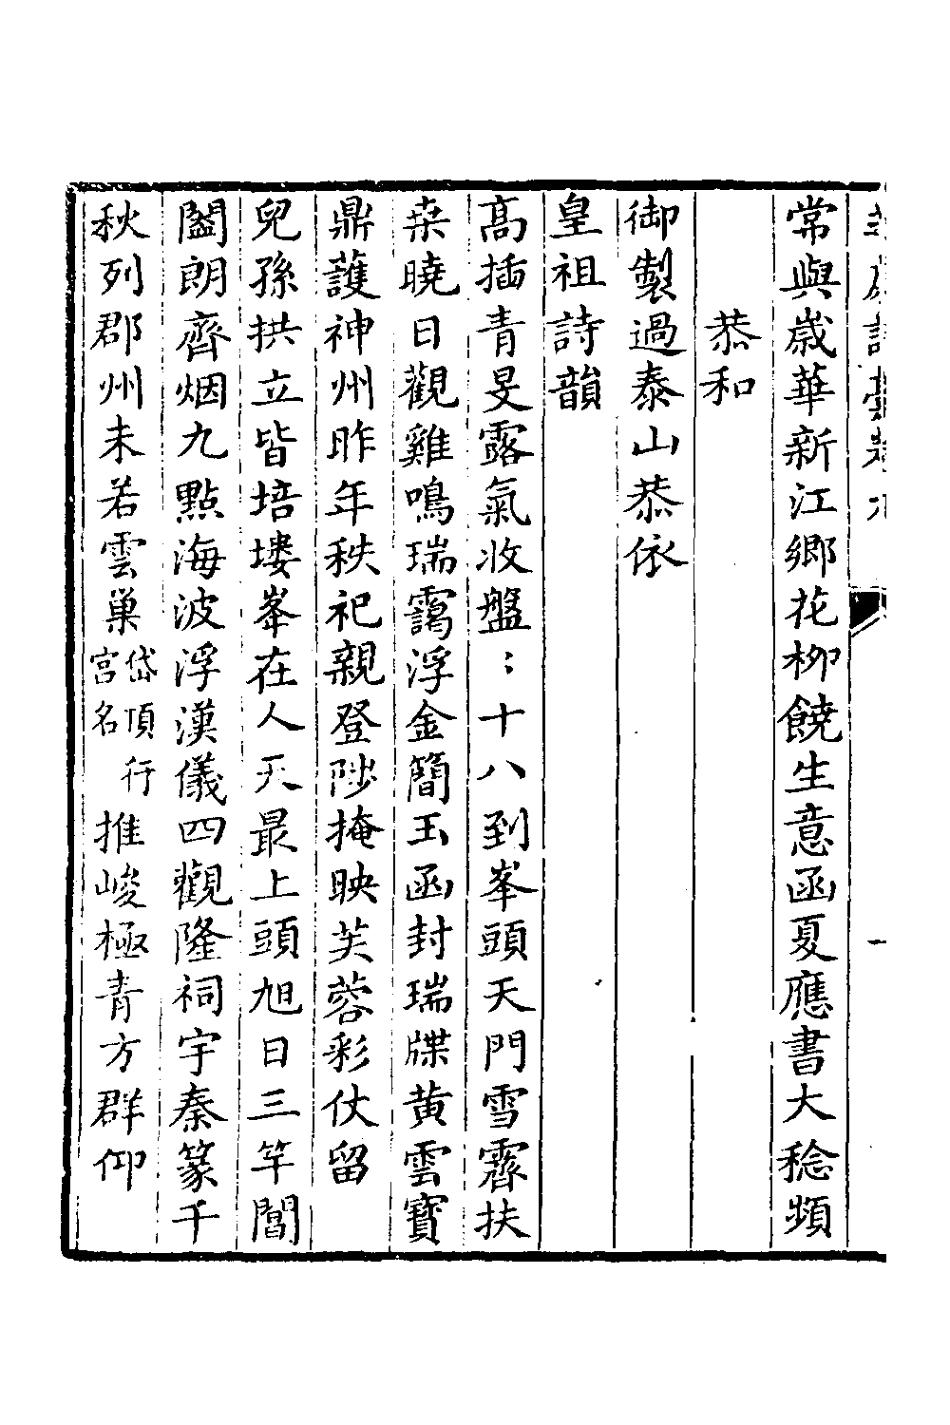 常與歲華新江鄉花柳饒生意函夏應書大稔頻
恭和
御製過泰山恭依
皇祖詩韻
高插青旻露氣收盤：十八到峯頭天門雪霽扶
桒曉日觀雞鳴瑞靄浮金簡玉函封瑞牒黄雲寳
鼎護神州昨年秩祀親登陟掩映芙蓉彩仗留
兒孫拱立皆培塿峯在人天最上頭旭日三竿閶
闔朗齊烟九點海波浮漢儀四觀隆祠宇秦篆千
秋列郡州未若雲巢岱頂行宫名推峻極青方群仰